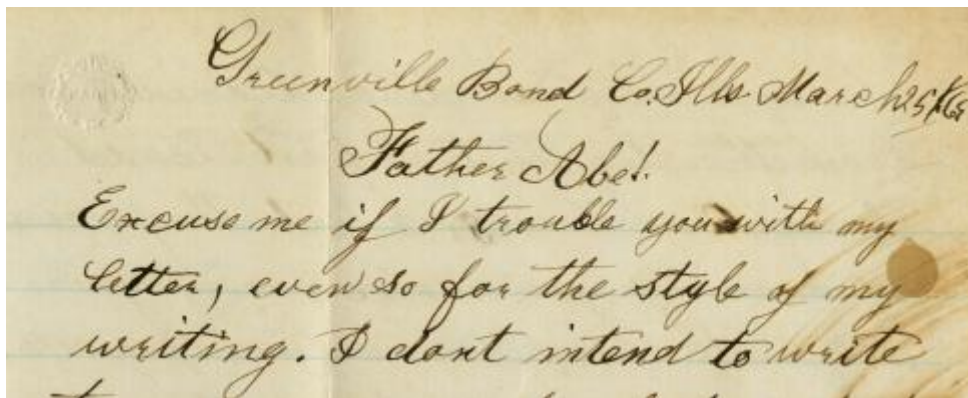 Greenville Bond Co. Ills. March 25/
Father Abe!
Excuse me if I trouble you with my
letter, even so for the style of my
writing. I dont intend to write